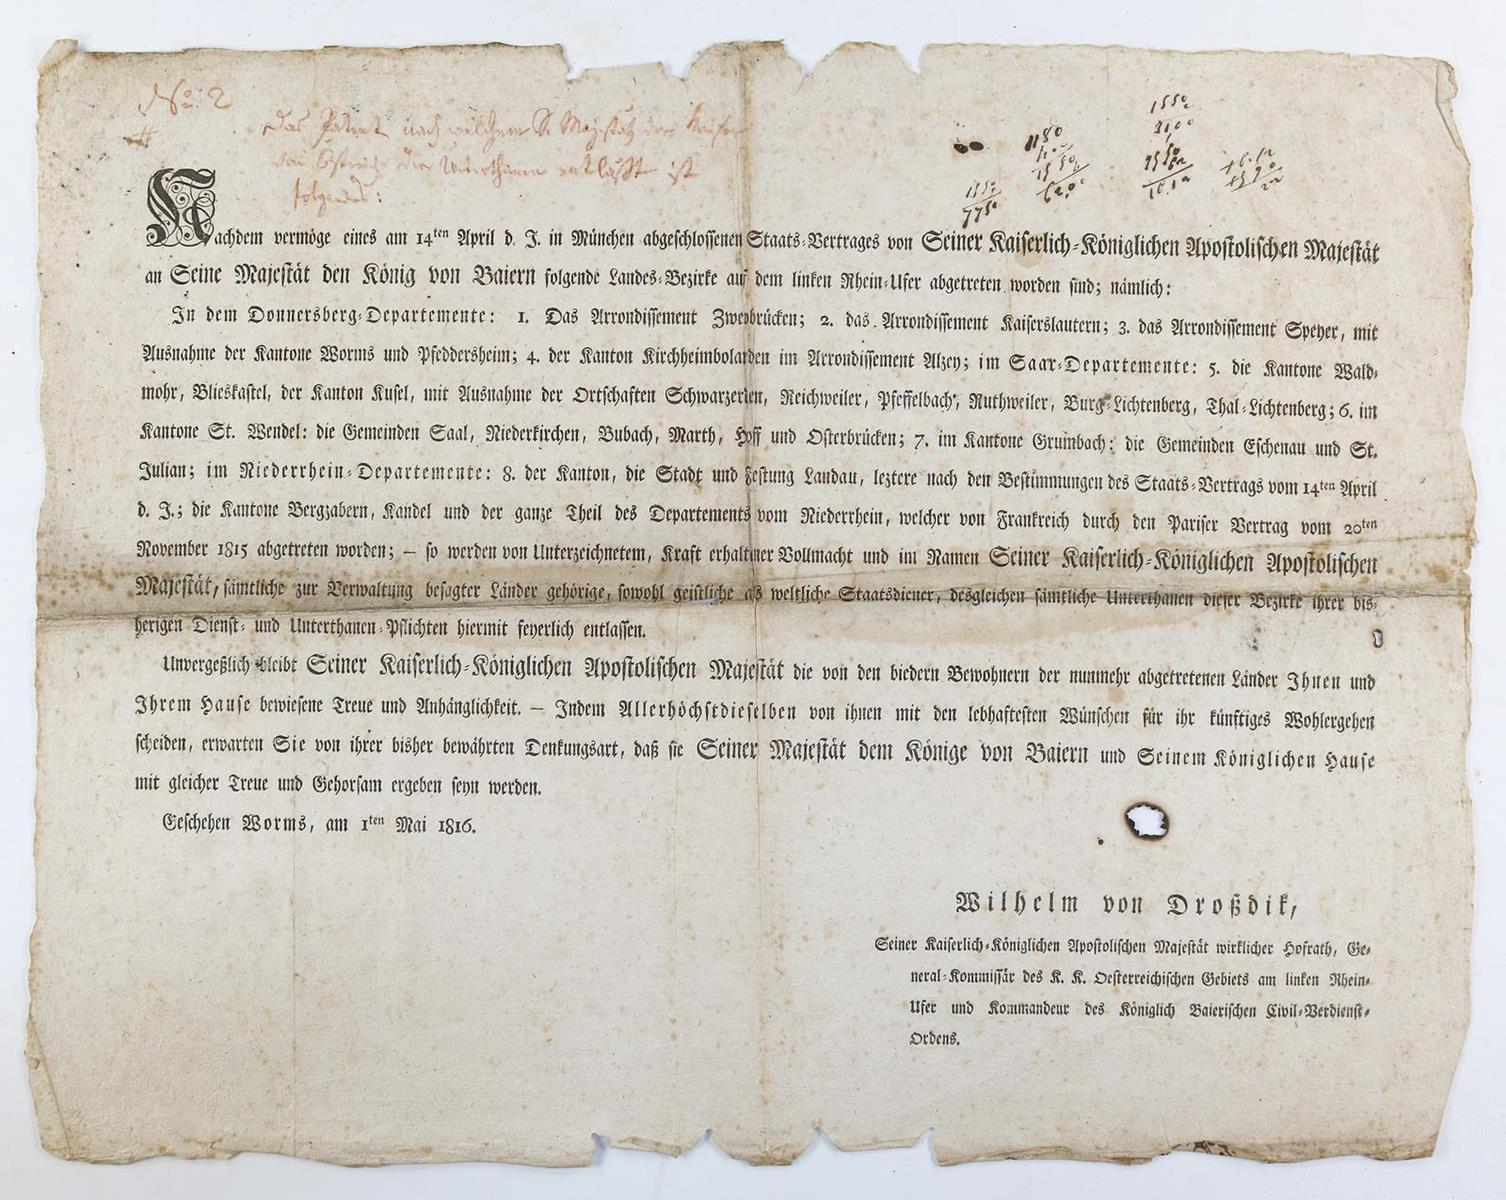 No: 2
Das Patent nach welchem S. Majestät der Kaiser
von Östreich die Unterthanen entläßt ist
folgendes:
1550
1180
1550
7750
Nachdem vermöge eines am 14ten April d. J. in München abgeschlossenen Staats-Vertrages von Seiner Kaiserlich-Königlichen Apostolischen Majestät
an Seine Majestät den König von Baiern folgende Landes-Bezirke auf dem linken Rhein-Ufer abgetreten worden sind; nämlich:
In dem Donnersberg-Departemente: 1. Das Arrondissement Zweybrücken; 2. das Arrondissement Kaiserslautern; 3. das Arrondissement Speyer, mit
Ausnahme der Kantone Worms und Pfeddersheim; 4. der Kanton Kirchheimbolanden im Arrondissement Alzey; im Saar-Departemente: 5. die Kantone Wald-
mohr, Blieskastel, der Kanton Kusel, mit Ausnahme der Ortschaften Schwarzerden, Reichweiler, Pfeffelbach, Ruthweiler, Burg-Lichtenberg, Thal-Lichtenberg; 6. im
Kantone St. Wendel: die Gemeinden Saal, Niederkirchen, Bubach, Marth, Hoff und Osterbrücken; 7. im Kantone Grumbach: die Gemeinden Eschenau und St.
Julian; im Niederrhein-Departemente: 8. der Kanton, die Stadt und Festung Landau, leztere nach den Bestimmungen des Staats-Vertrags vom 14ten April
d. J.; die Kantone Bergzabern, Kandel und der ganze Theil des Departements vom Niederrhein, welcher von Frankreich durch den Pariser Vertrag vom 20ten
November 1815 abgetreten worden; — so werden von Unterzeichnetem, Kraft erhaltener Vollmacht und im Namen Seiner Kaiserlich-Königlichen Apostolischen
Majestät, sämtliche zur Verwaltung besagter Länder gehörige, sowohl geistliche als weltliche Staatsdiener, desgleichen sämtliche Unterthanen dieser Bezirke ihrer bis-
herigen Dienst- und Unterthanen-Pflichten hiermit feyerlich entlassen.
Unvergeßlich bleibt Seiner Kaiserlich-Königlichen Apostolischen Majestät die von den biedern Bewohnern der nunmehr abgetretenen Länder Ihnen und
Ihrem Hause bewiesene Treue und Anhänglichkeit. — Indem Allerhöchstdieselben von ihnen mit den lebhaftesten Wünschen für ihr künftiges Wohlergehen
scheiden, erwarten Sie von ihrer bisher bewährten Denkungsart, daß sie Seiner Majestät dem Könige von Baiern und Seinem Königlichen Hause
mit gleicher Treue und Gehorsam ergeben seyn werden.
Geschehen Worms, am 1ten Mai 1816.
Wilhelm von Droßdik,
Seiner Kaiserlich-Königlichen Apostolischen Majestät wirklicher Hofrath, Ge-
neral-Kommissär des K. K. Oesterreichischen Gebiets am linken Rhein-
Ufer und Kommandeur des Königlich Baierischen Civil-Verdienst-
Ordens.